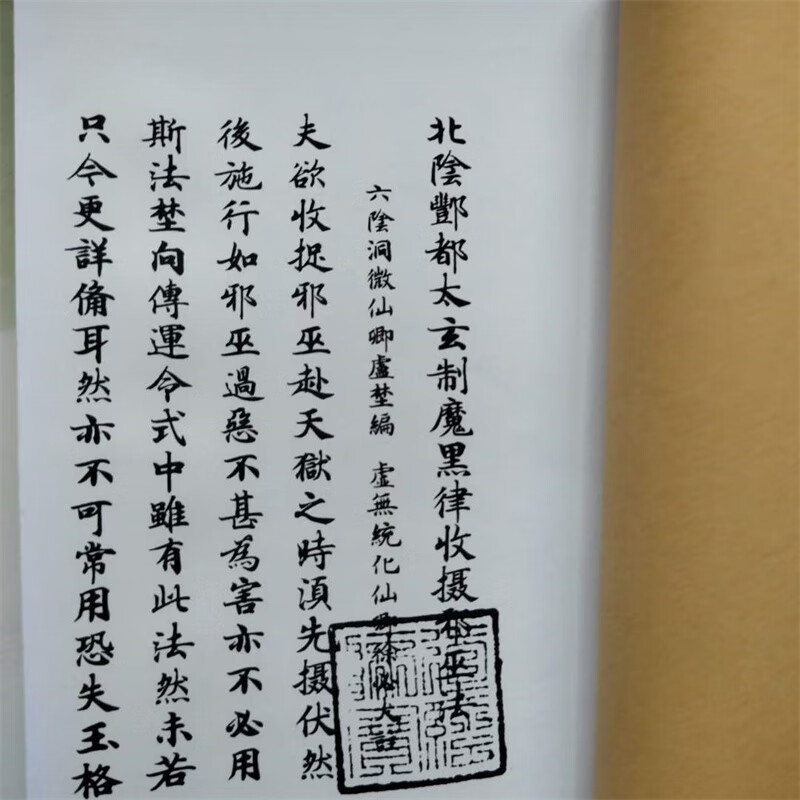 北陰酆都太玄制魔黑律收摄邪巫法
六陰洞微仙卿盧埜編 虛無統化仙卿徐必大註
夫欲收捉邪巫赴天獄之時湏先摄伏然
後施行如邪巫過惡不甚為害亦不必用
斯法埜向傳運令式中雖有此法然未若
只今更詳俻耳然亦不可常用恐失玉格